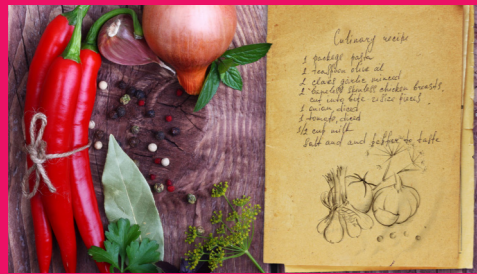 Culinary recipe
1 package pasta
1 teaspoon olive oil
2 cloves garlic minced
2 boneless skinless chicken breasts,
cut into bite size pieces,
1 onion, diced
1 tomato, diced
1/2 cup milk
Salt and and pepper to taste